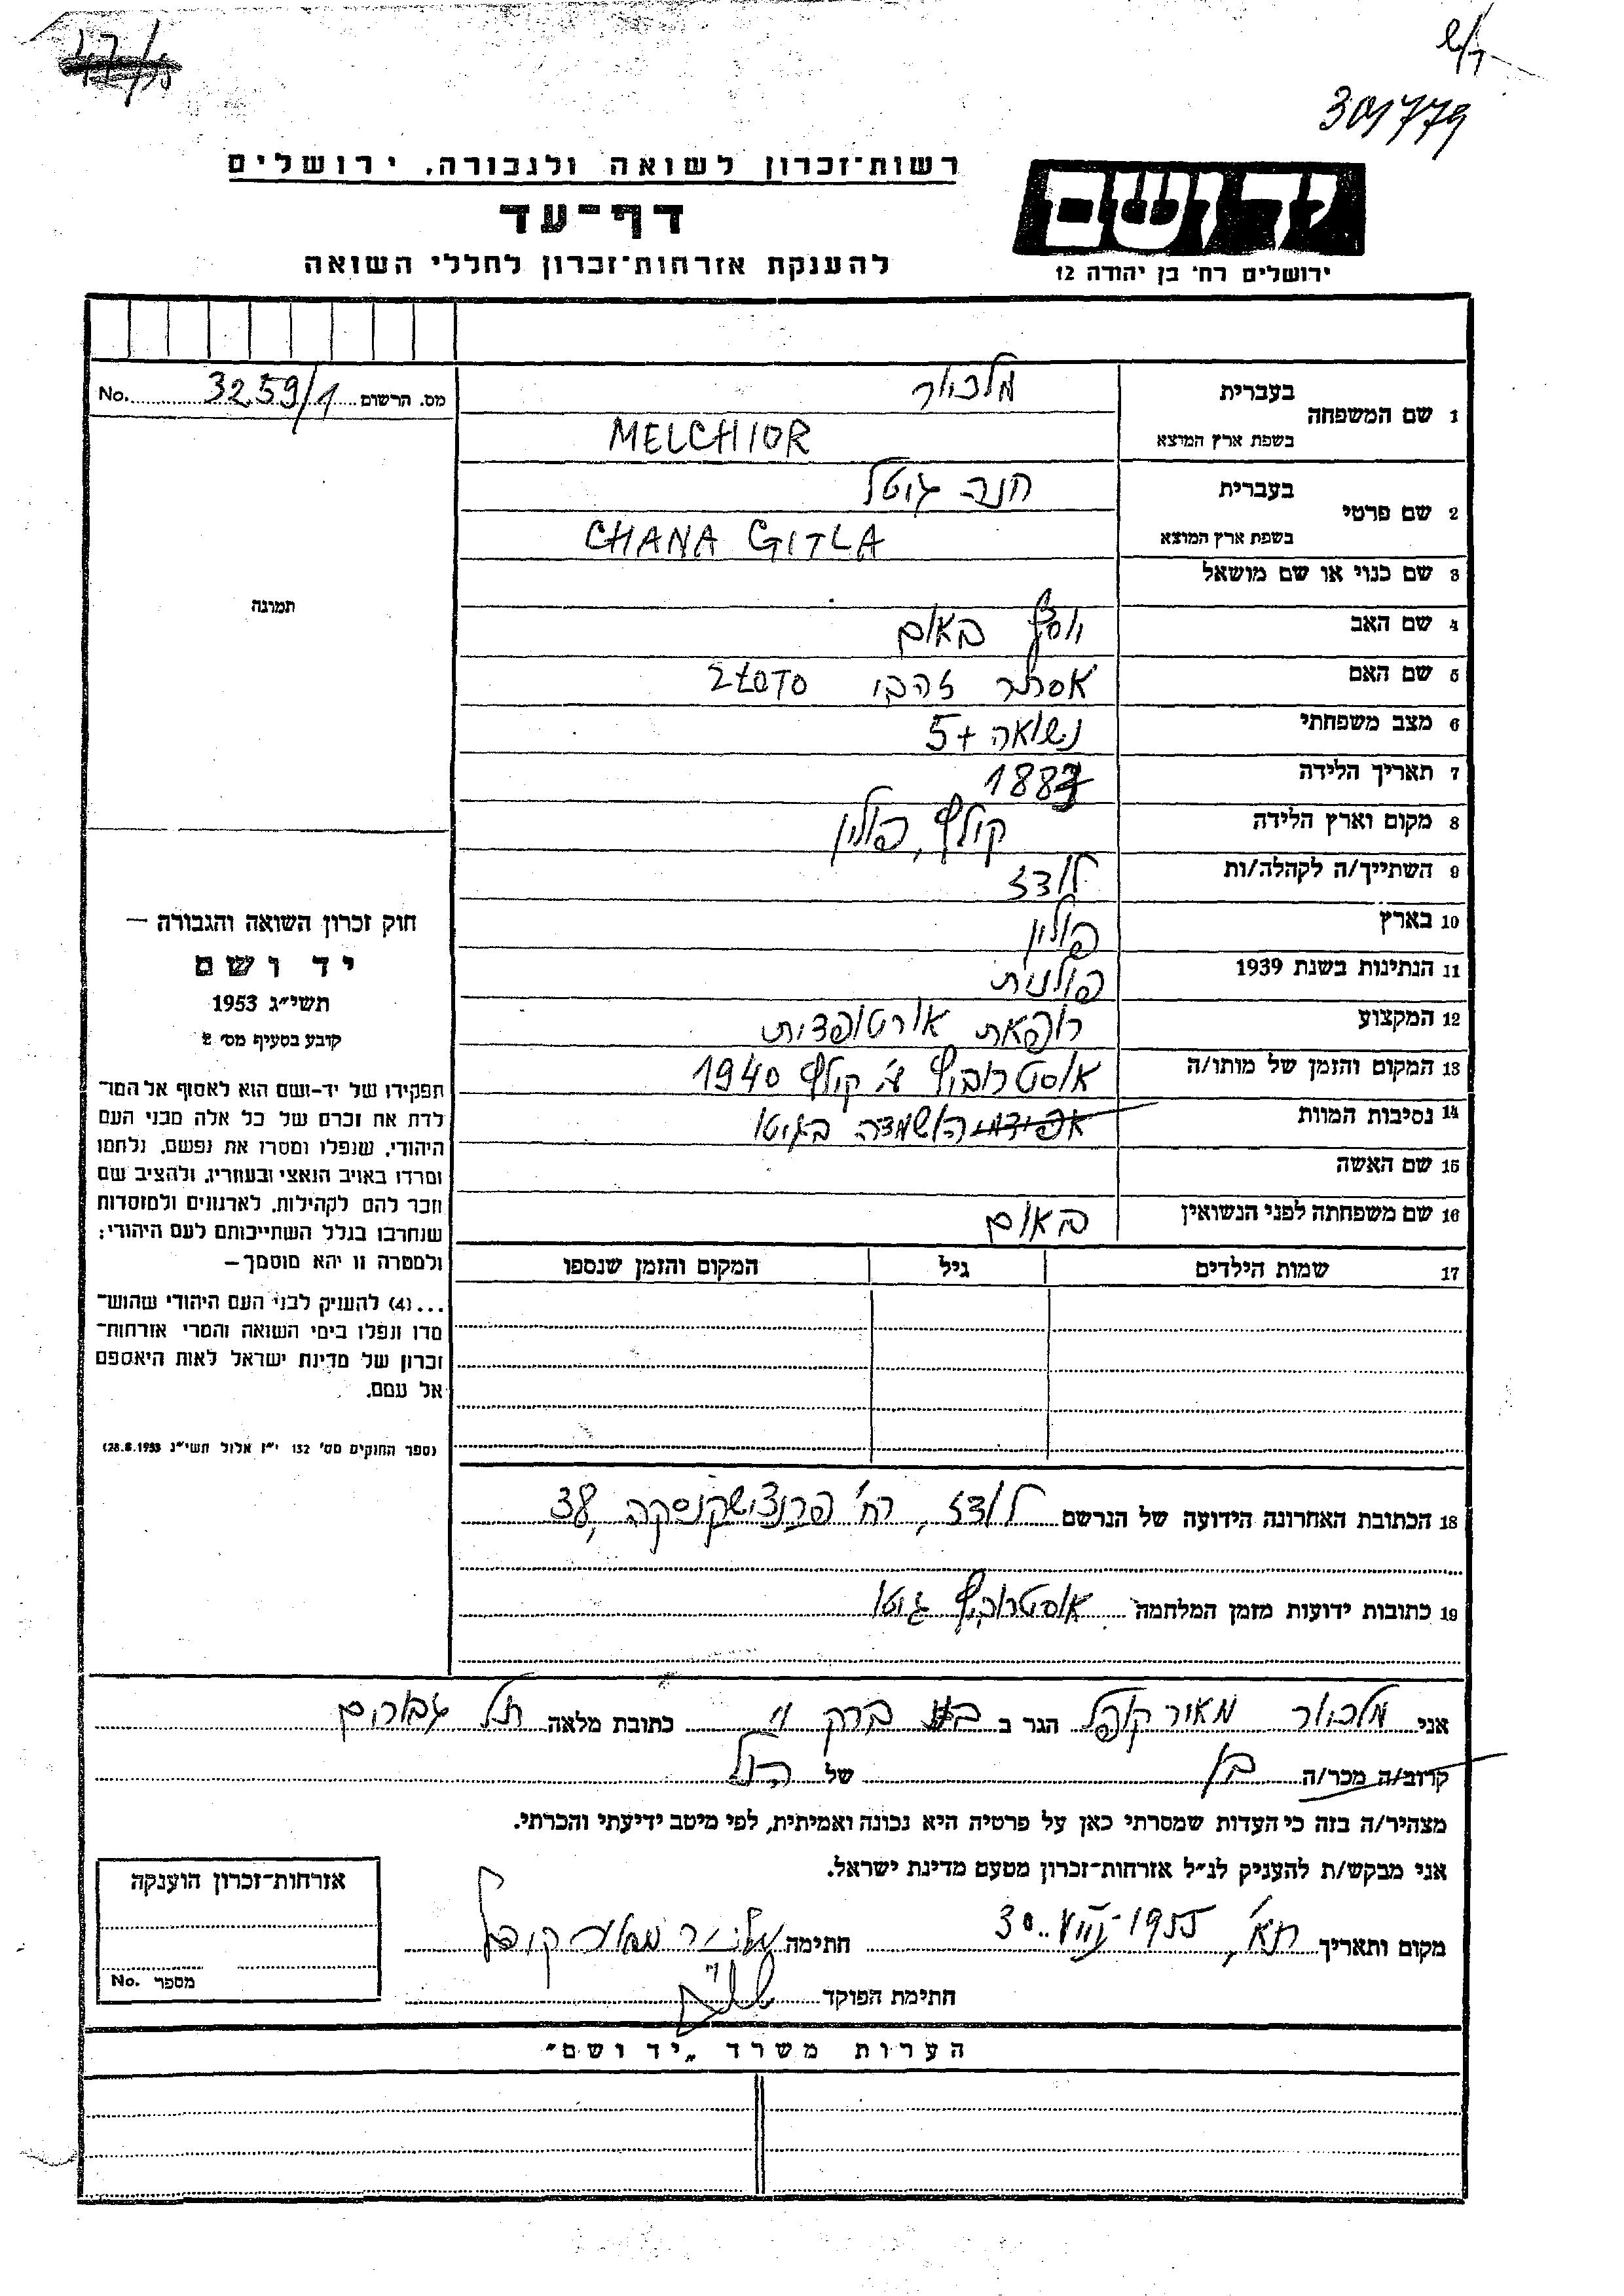 301779
רשות־זכרון לשואה ולגבורה, ירושלים
יד ושם
דף־עד
להענקת אזרחות־זכרון לחללי השואה
ירושלים רח' בן יהודה 12
מס. הרשום 3259/1 No.
1 שם המשפחה
בעברית מלכיאור
בשפת ארץ המוצא MELCHIOR
2 שם פרטי
בעברית חנה גיטל
בשפת ארץ המוצא CHANA GITLA
3 שם כנוי או שם מושאל
תמונה
4 שם האב יוסף באום
5 שם האם אסתר זהבו ZŁOTO
6 מצב משפחתי נשואה +5
7 תאריך הלידה 1887
8 מקום וארץ הלידה קולף, פולין
9 השתייך/ה לקהלה/ות לודז
10 בארץ פולין
11 הנתינות בשנת 1939 פולנית
12 המקצוע רופאת אורטופדית
13 המקום והזמן של מותו/ה אוסטרוביץ ע' קולף 1940
14 נסיבות המוות השמדה בגיטו
15 שם האשה
16 שם משפחתה לפני הנשואין באום
17 שמות הילדים גיל המקום והזמן שנספו
חוק זכרון השואה והגבורה —
יד ושם
תשי"ג 1953
קובע בסעיף מס' 2
תפקידו של יד-ושם הוא לאסוף אל המו־
לדת את זכרם של כל אלה מבני העם
היהודי, שנפלו ומסרו את נפשם, נלחמו
ומרדו באויב הנאצי ובעוזריו, ולהציב שם
וזכר להם לקהילות, לארגונים ולמוסדות
שנחרבו בגלל השתייכותם לעם היהודי;
ולמטרה זו יהא מוסמך—
...(4) להעניק לבני העם היהודי שהוש־
מדו ונפלו בימי השואה והמרי אזרחות־
זכרון של מדינת ישראל לאות היאספם
אל עמם.
(ספר החוקים מס' 132 י"ז אלול תשי"ג 28.8.1953)
18 הכתובת האחרונה הידועה של הנרשם לודז, רח' פרנצישקנסקה 38,
19 כתובות ידועות מזמן המלחמה אוסטרוביץ גיטו
אני מלכיאור מאיר קופל הגר ב בני ברק כתובת מלאה תל גבורים
קרוב/ה מכר/ה בן של הנ"ל
מצהיר/ה בזה כי העדות שמסרתי כאן על פרטיה היא נכונה ואמיתית, לפי מיטב ידיעתי והכרתי.
אני מבקש/ת להעניק לנ"ל אזרחות־זכרון מטעם מדינת ישראל.
מקום ותאריך ת"א, 30.VIII-1955 חתימה מלכיאור מאיר קופל
חתימת הפוקד
אזרחות־זכרון הוענקה
מספר No.
הערות משרד „יד ושם"